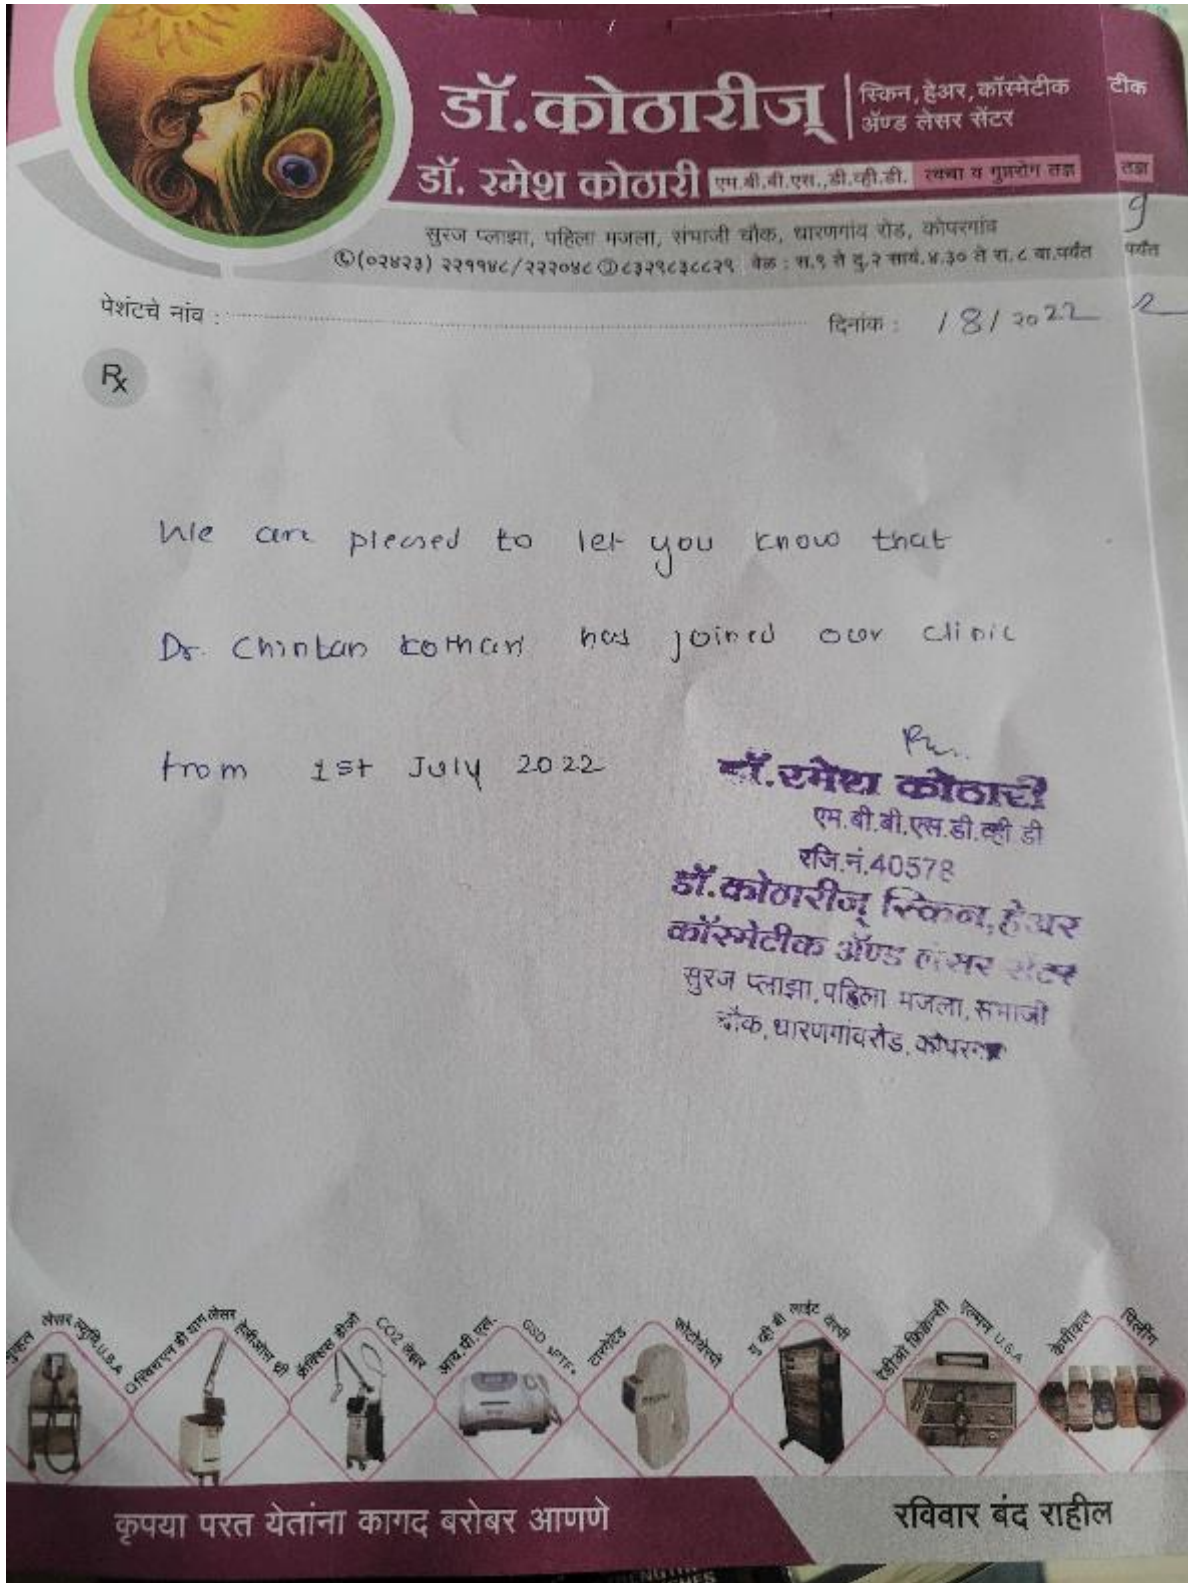 डॉ.कोठारीज्
स्किन,हेअर,कॉस्मेटीक
ॲण्ड लेसर सेंटर
टीक
डॉ. रमेश कोठारी एम.बी.बी.एस.,डी.व्ही.डी. त्वचा व गुप्तरोग तज्ञ
तज्ञ
सुरज प्लाझा, पहिला मजला, संभाजी चौक, धारणगांव रोड, कोपरगांव
(०२४२३) २२११४८/२२२०४८ ८३२९८३८८२९ वेळ : स.९ ते दु.२ सायं.४.३० ते रा.८ वा.पर्यंत
पर्यंत
पेशंटचे नांव :
दिनांक : /8/2022
Rx
We are pleased to let you know that
Dr. Chintan Kothari has joined our clinic
from 1st July 2022
डॉ.रमेश कोठारी
एम.बी.बी.एस.डी.व्ही.डी
रजि.नं.40578
डॉ.कोठारीज् स्किन,हेअर
कॉस्मेटीक ॲण्ड लेसर सेंटर
सुरज प्लाझा,पहिला मजला,संभाजी
चौक,धारणगांवरोड,
लेसर U.S.A
लेसर
CO2 लेसर
आय.पी.एल.
टारगेटेड फोटोथेरपी
यु व्ही बी लाईट थेरपी
रेडीओ फ्रिक्वेन्सी एल्मन U.S.A
केमीकल पिलींग
कृपया परत येतांना कागद बरोबर आणणे
रविवार बंद राहील